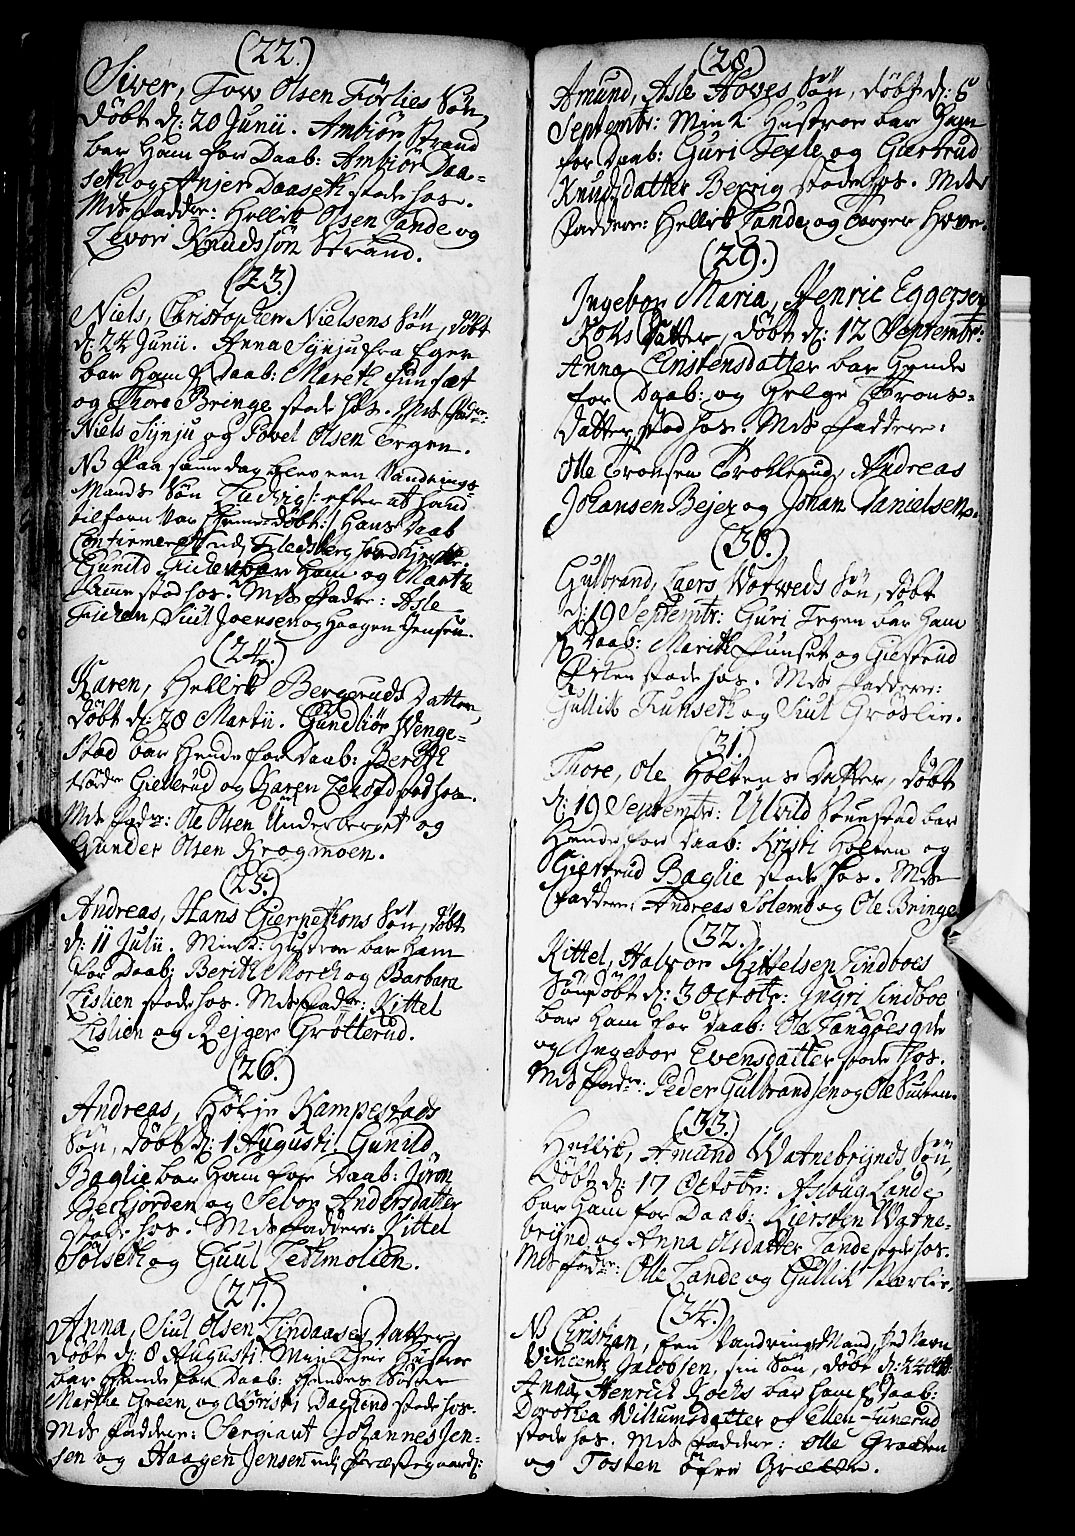 (22.)
Siver, Tov Olsen Førlies Søn,
døbt d: 20 Junii. Ambiør Strand
bar Ham for Daab: Ambiør Daa-
seth og Anjer Daaseth stode hos.
Mds fadder: Hellik Olsen Lande og
Levori Knudssøn Strand.
(23)
Niels, Christopher Nielsens Søn, døbt
d: 24 Junii. Anna Synju fra Eger
bar Ham f Daab: Mareth Funsæt
og Thore Bringe stode hos. Mds fadre:
Niels Synju og Povel Olsen Tegen.
NB Paa samme dag blev een Vandrings-
Mands Søn Ledvig: efter at hand
tilforn var hjemmedøbt: Hans Daab
Confirmeret udj Flesberg hovedkirke,
Gunild bar Ham og Marthe
stod hos. Mds fadre: Asle
Juven, Siul Joensen og Haagen Jensen.
(24.)
Karen, Hellik Bergeruds Datter,
døbt d: 28 Martii. Gundbiør Wenge-
stad bar Hende for Daab: Berith
Nørdre Gjellerud og Karen stod hos.
Mds fadre: Ole Olsen Underberget og
Gunder Olsen Krogmoen.
(25.)
Andreas, Hans Gjernethons Søn, døbt
d: 11 Julii. Min k: Hustroe bar Ham
for Daab; Berith Morch og Barbara
Lislien stode hos. Mds fadre: Kittel
Lislien og Rejger Grøtterud.
(26.)
Andreas, Hølje Kampestads
Søn, døbt d: 1 Augusti. Gunild
Baglie bar Ham for Daab: Jøron
Bechjorden og Sebor Andersdatter
stode hos. Mds faddere: Kittel
Sølseth og Guul Lechmolien.
(27.)
Anna, Siul Olsen Lindaases Datter,
døbt d: 8 Augusti. Min Kier Hustroe
bar Hende for Daab: Hendes Søster
Martha Green, og Kristi Daglind stode hos.
Mds faddere: Sergiant Johannes Jen-
sen og Haagen Jensen udj Præstegaard:
(28)
Amund, Asle Hoves Søn, døbt d: 5
Septembr: Min k: Hustroe bar Ham
for Daab: Guri Texle og Giertrud
Knudsdatter Berrig stode hos. Mds
faddere: Hellik Lande og Torger Hove.
(29.)
Ingebor Maria, Henric Eggersen
Kohs Datter, døbt d: 12 Septembr:
Anna Christensdatter bar Hende
for Daab: og Helge Trons-
datter stod hos. Mds faddere:
Olle Tronsen Trollerud, Andreas
Johansen Bejer og Johan Danielsen.
(30.)
Gulbrand, Laers Watweds Søn, døbt
d: 19 Septembr: Guri Tegen bar Ham
f Daab: Marith Funset og Giertrud
Ørsten stode hos. Mds faddere:
Gullik Funseth og Siul Grøslie.
(31.)
Thore, Ole Holtens Datter, døbt
d: 19 Septembr: Ulvild Sønestad bar
Hende for Daab: Kristi Holten og
Giertrud Baglie stode hos. Mds
faddere, Andreas Solemb og Ole Bringe.
(32.)
Kittel, Halvor Kittelsen Lindboes
Søn døbt d: 3 Octobr: Ingri Lindboe
bar Ham for Daab: Ole Langøes qde
og Ingebor Evensdatter stode hos.
Mds fadre: Peder Gulbrandsen og Ole
(33.)
Hellik, Amund Watnebrynds Søn,
døbt d: 17 Octobr: Aslaug Lande
bar Ham for Daab: Kiersten Watne-
brynd og Anna Olsdatter Lande stode hos.
Mds fadre: Olle Lande og Gullik
(34.)
NB Christian, Een Vandrings Mand, ved Navn
Vincentz Jacobsen, sin Søn, døbt d: 24 Octbr:
Anna Henrich Kochs bar Ham f Daab:
Dorothea Willumsdatter og Ellen Funerud
stode hos. Mds faddere: Olle Græten
og Tosten øfre Græten.